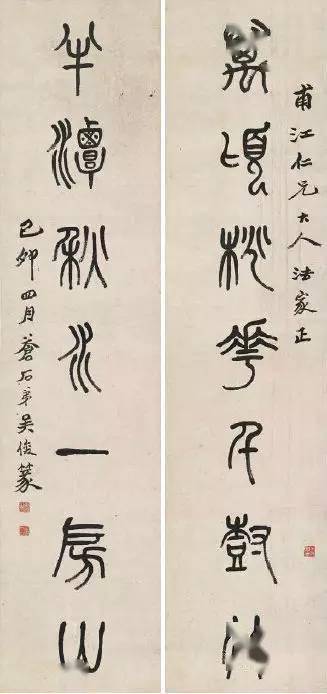 甫江仁兄大人法家正
萬頃桃華千尌
半潭秋水一房山
己卯四月蒼石弟吳俊篆